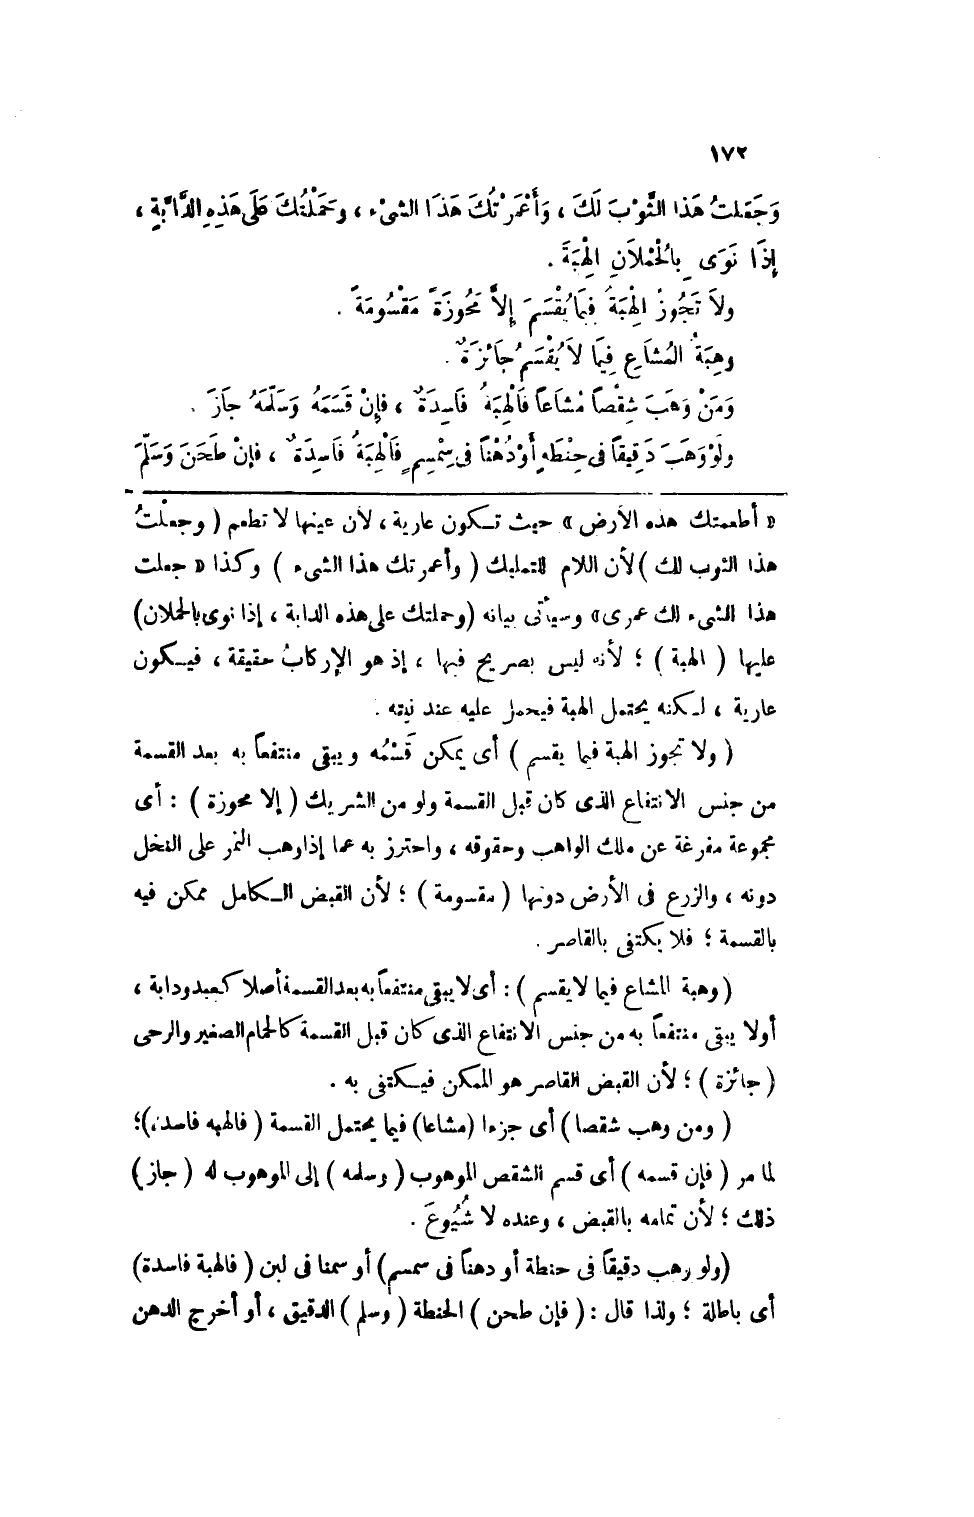 ١٧٢
وَجَعَلتُ هَذا الثَّوْبَ لَكَ ، وَأَعْمَرْتُكَ هَذَا الشىْء ، وَحَمَلْتُكَ عَلَى هَذِهِ الدَّابَّةِ ،
إِذَا نَوَى بِالْحُمْلاَنِ الْهِبَةَ .
ولاَ تَجُوزُ الْهِبَةُ فِيمَا يُقْسَمَ إِلاَّ مَحُوزَةً مَقْسُومَةً .
وهِبَةُ المُشَاعِ فِيمَا لاَ يُقْسَمُ جَائزَةٌ .
وَمَنْ وَهَبَ شِقْصاً مُشَاعاً فَالْهِبَةُ فَاسِدَةٌ ، فَإِنْ قَسَمَهُ وَسَلّمَهُ جَازَ .
ولَوْ وَهَبَ دَقِيقاً فى حِنْطَهٍ أَوْ دُهْناً فى سِمْسِمٍ فَالْهِبَةُ فَاسِدَةٌ ، فإنْ طَحَنَ وَسَلّمَ
« أطعمتك هذه الأرض » حيث تكون عارية ، لأن عينها لا تطعم ( وجعلتُ
هذا الثوب لك ) لأن اللام للتمليك ( وأعمرتك هذا الشىء ) وكذا « جعلت
هذا الشىء لك عمرى » وسيأتى بيانه (وحملتك على هذه الدابة ، إذا نوى بالحملان)
عليها ( الهبة ) ؛ لأنه ليس بصريح فيها ، إذ هو الإركابُ حقيقة ، فيكون
عارية ، لكنه يحتمل الهبة فيحمل عليه عند نيته .
( ولا تجوز الهبة فيما يقسم ) أى يمكن قَسْمُه ويبقى منتفعاً به بعد القسمة
من جنس الانتفاع الذى كان قبل القسمة ولو من الشريك ( إلا محوزة ) : أى
مجموعة مفرغة عن ملك الواهب وحقوقه ، واحترز به عما إذا وهب الثمر على النخل
دونه ، والزرع فى الأرض دونها ( مقسومة ) ؛ لأن القبض الكامل ممكن فيه
بالقسمة ؛ فلا يكتفى بالقاصر .
(وهبة المشاع فيما لايقسم ) : أى لا يبقى منتفعاً به بعد القسمة أصلا كعبد ودابة ،
أولا يبقى منتفعاً به من جنس الانتفاع الذى كان قبل القسمة كالحمام الصغير والرحى
( جائزة ) ؛ لأن القبض القاصر هو الممكن فيكتفى به .
( ومن وهب شقصا ) أى جزءا (مشاعا) فيما يحتمل القسمة ( فالهبه فاسدة)؛
لما مر ( فإن قسمه ) أى قسم الشقص الموهوب ( وسلمه ) إلى الموهوب له ( جاز )
ذلك ؛ لأن تمامه بالقبض ، وعنده لا شُيُوعَ .
(ولو وهب دقيقاً فى حنطة أو دهناً فى سمسم) أو سمنا فى لبن ( فالهبة فاسدة)
أى باطلة ؛ ولذا قال : ( فإن طحن ) الحنطة ( وسلم ) الدقيق ، أو أخرج الدهن